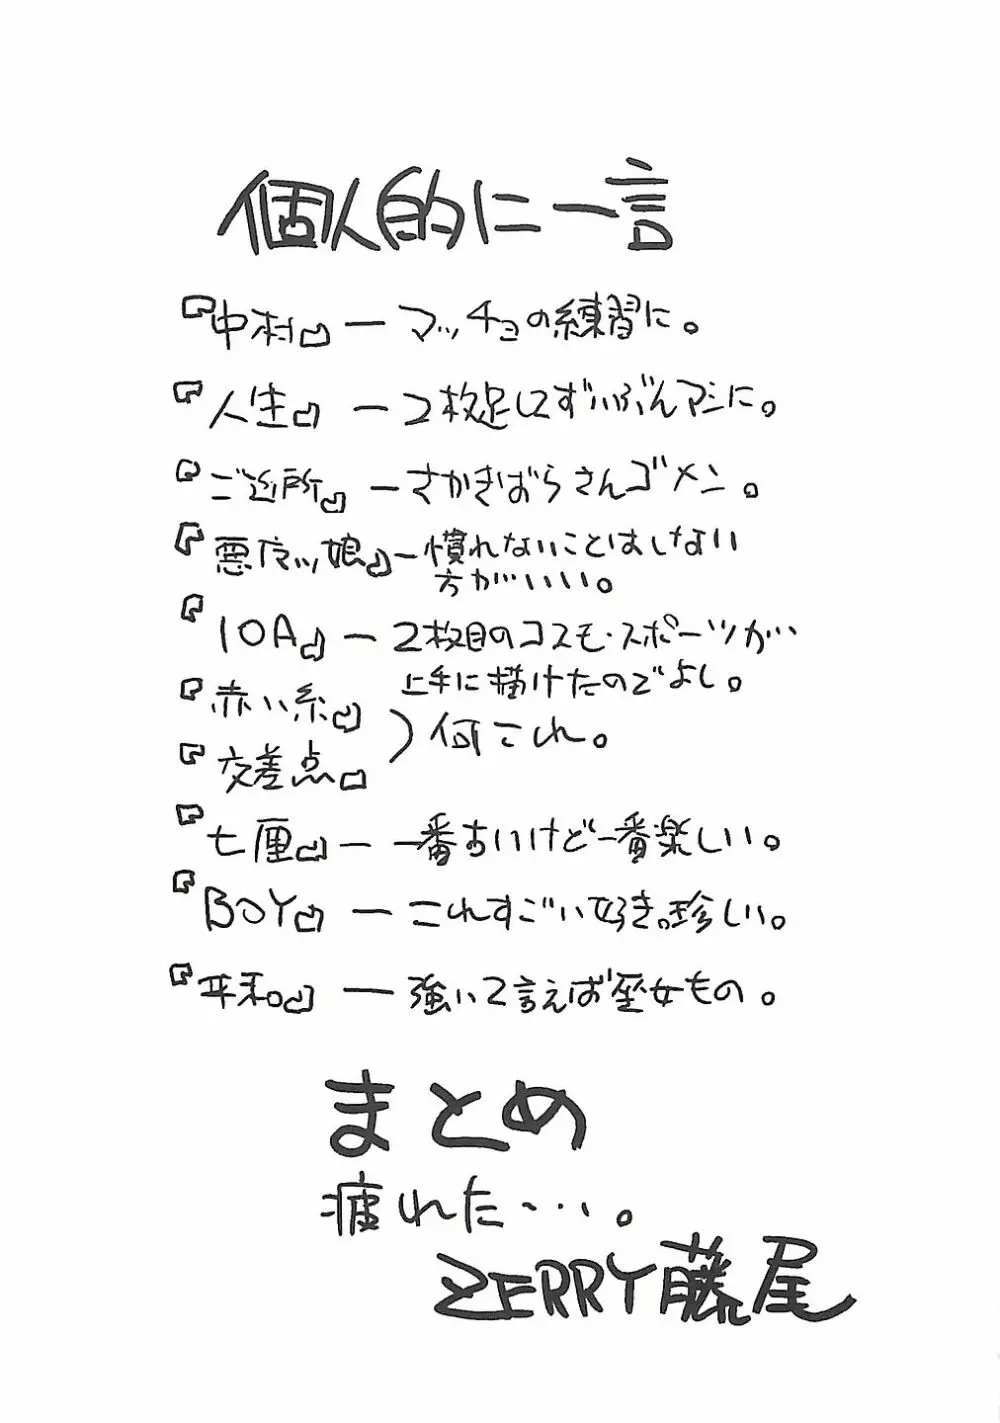 個人的に一言
『中村』ーマッチョの練習に。
『人生』ー2枚足してずいぶんマシに。
『ご近所』ーさかきばらさんゴメン。
『悪ガッ娘』ー慣れないことはしない
方がいいい。
『10A』ー2枚目のコスモ・スポーツが…
上手に描けたのでよし。
『赤い糸』
『交差点』
)何これ。
『七厘』ー一番古いけど一番楽しい。
『BOY』ーこれすごい好き。珍しい。
『平和。』ー強いて言えば巫女もの。
まとめ
疲れた…。
ZERRY藤尾